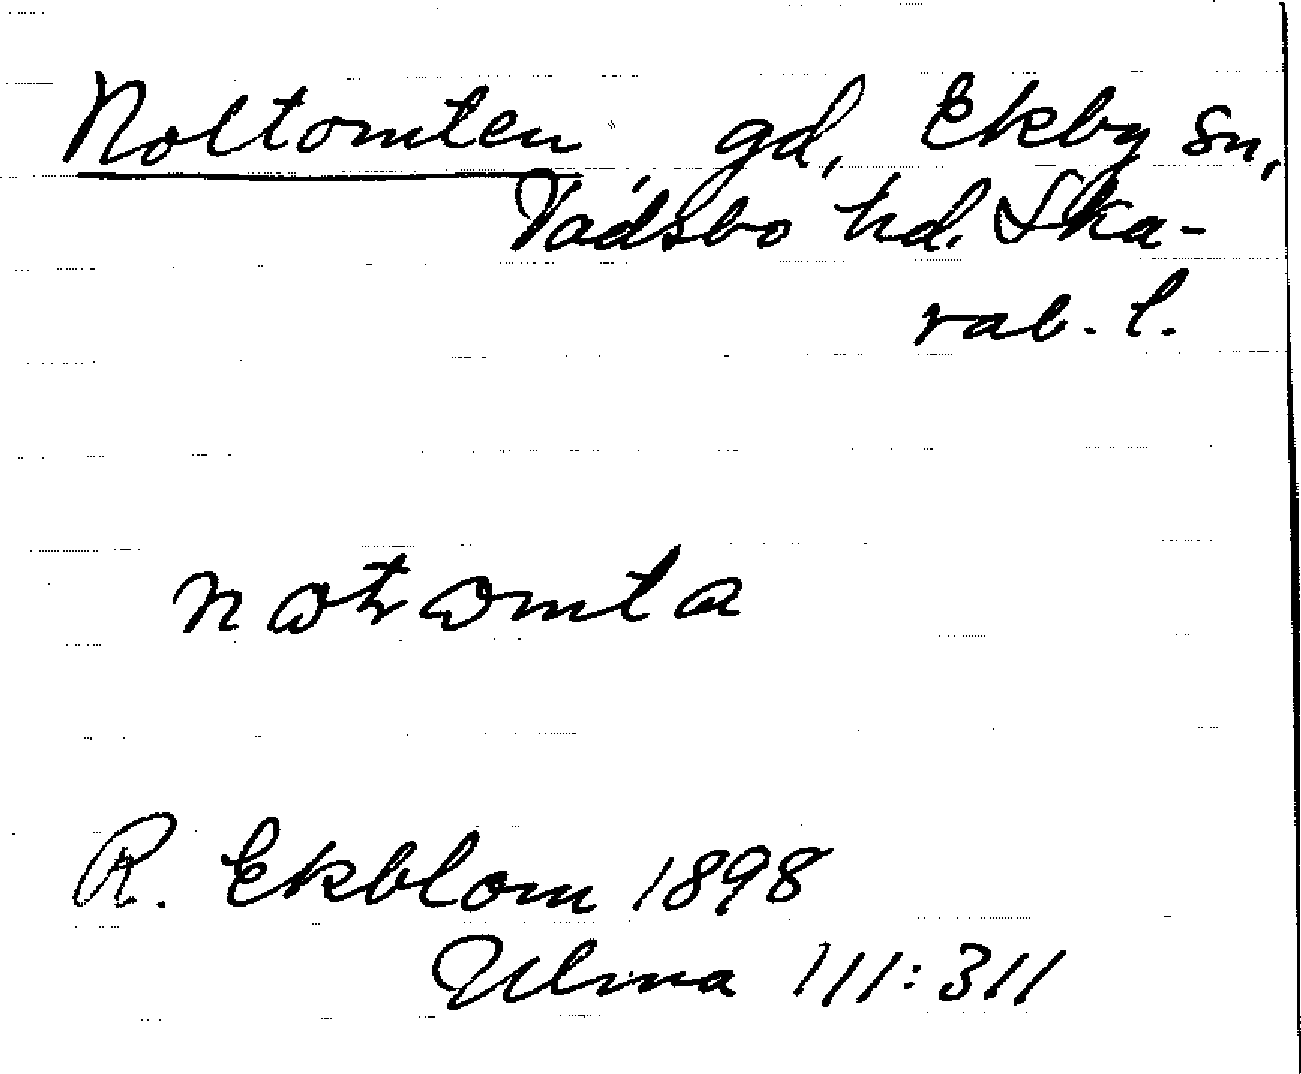 Noltomten, gd, Ekby sn,
Vadsbo hd. Ska-
rab. l.
R. Ekblom 1898
Ulma 111:311